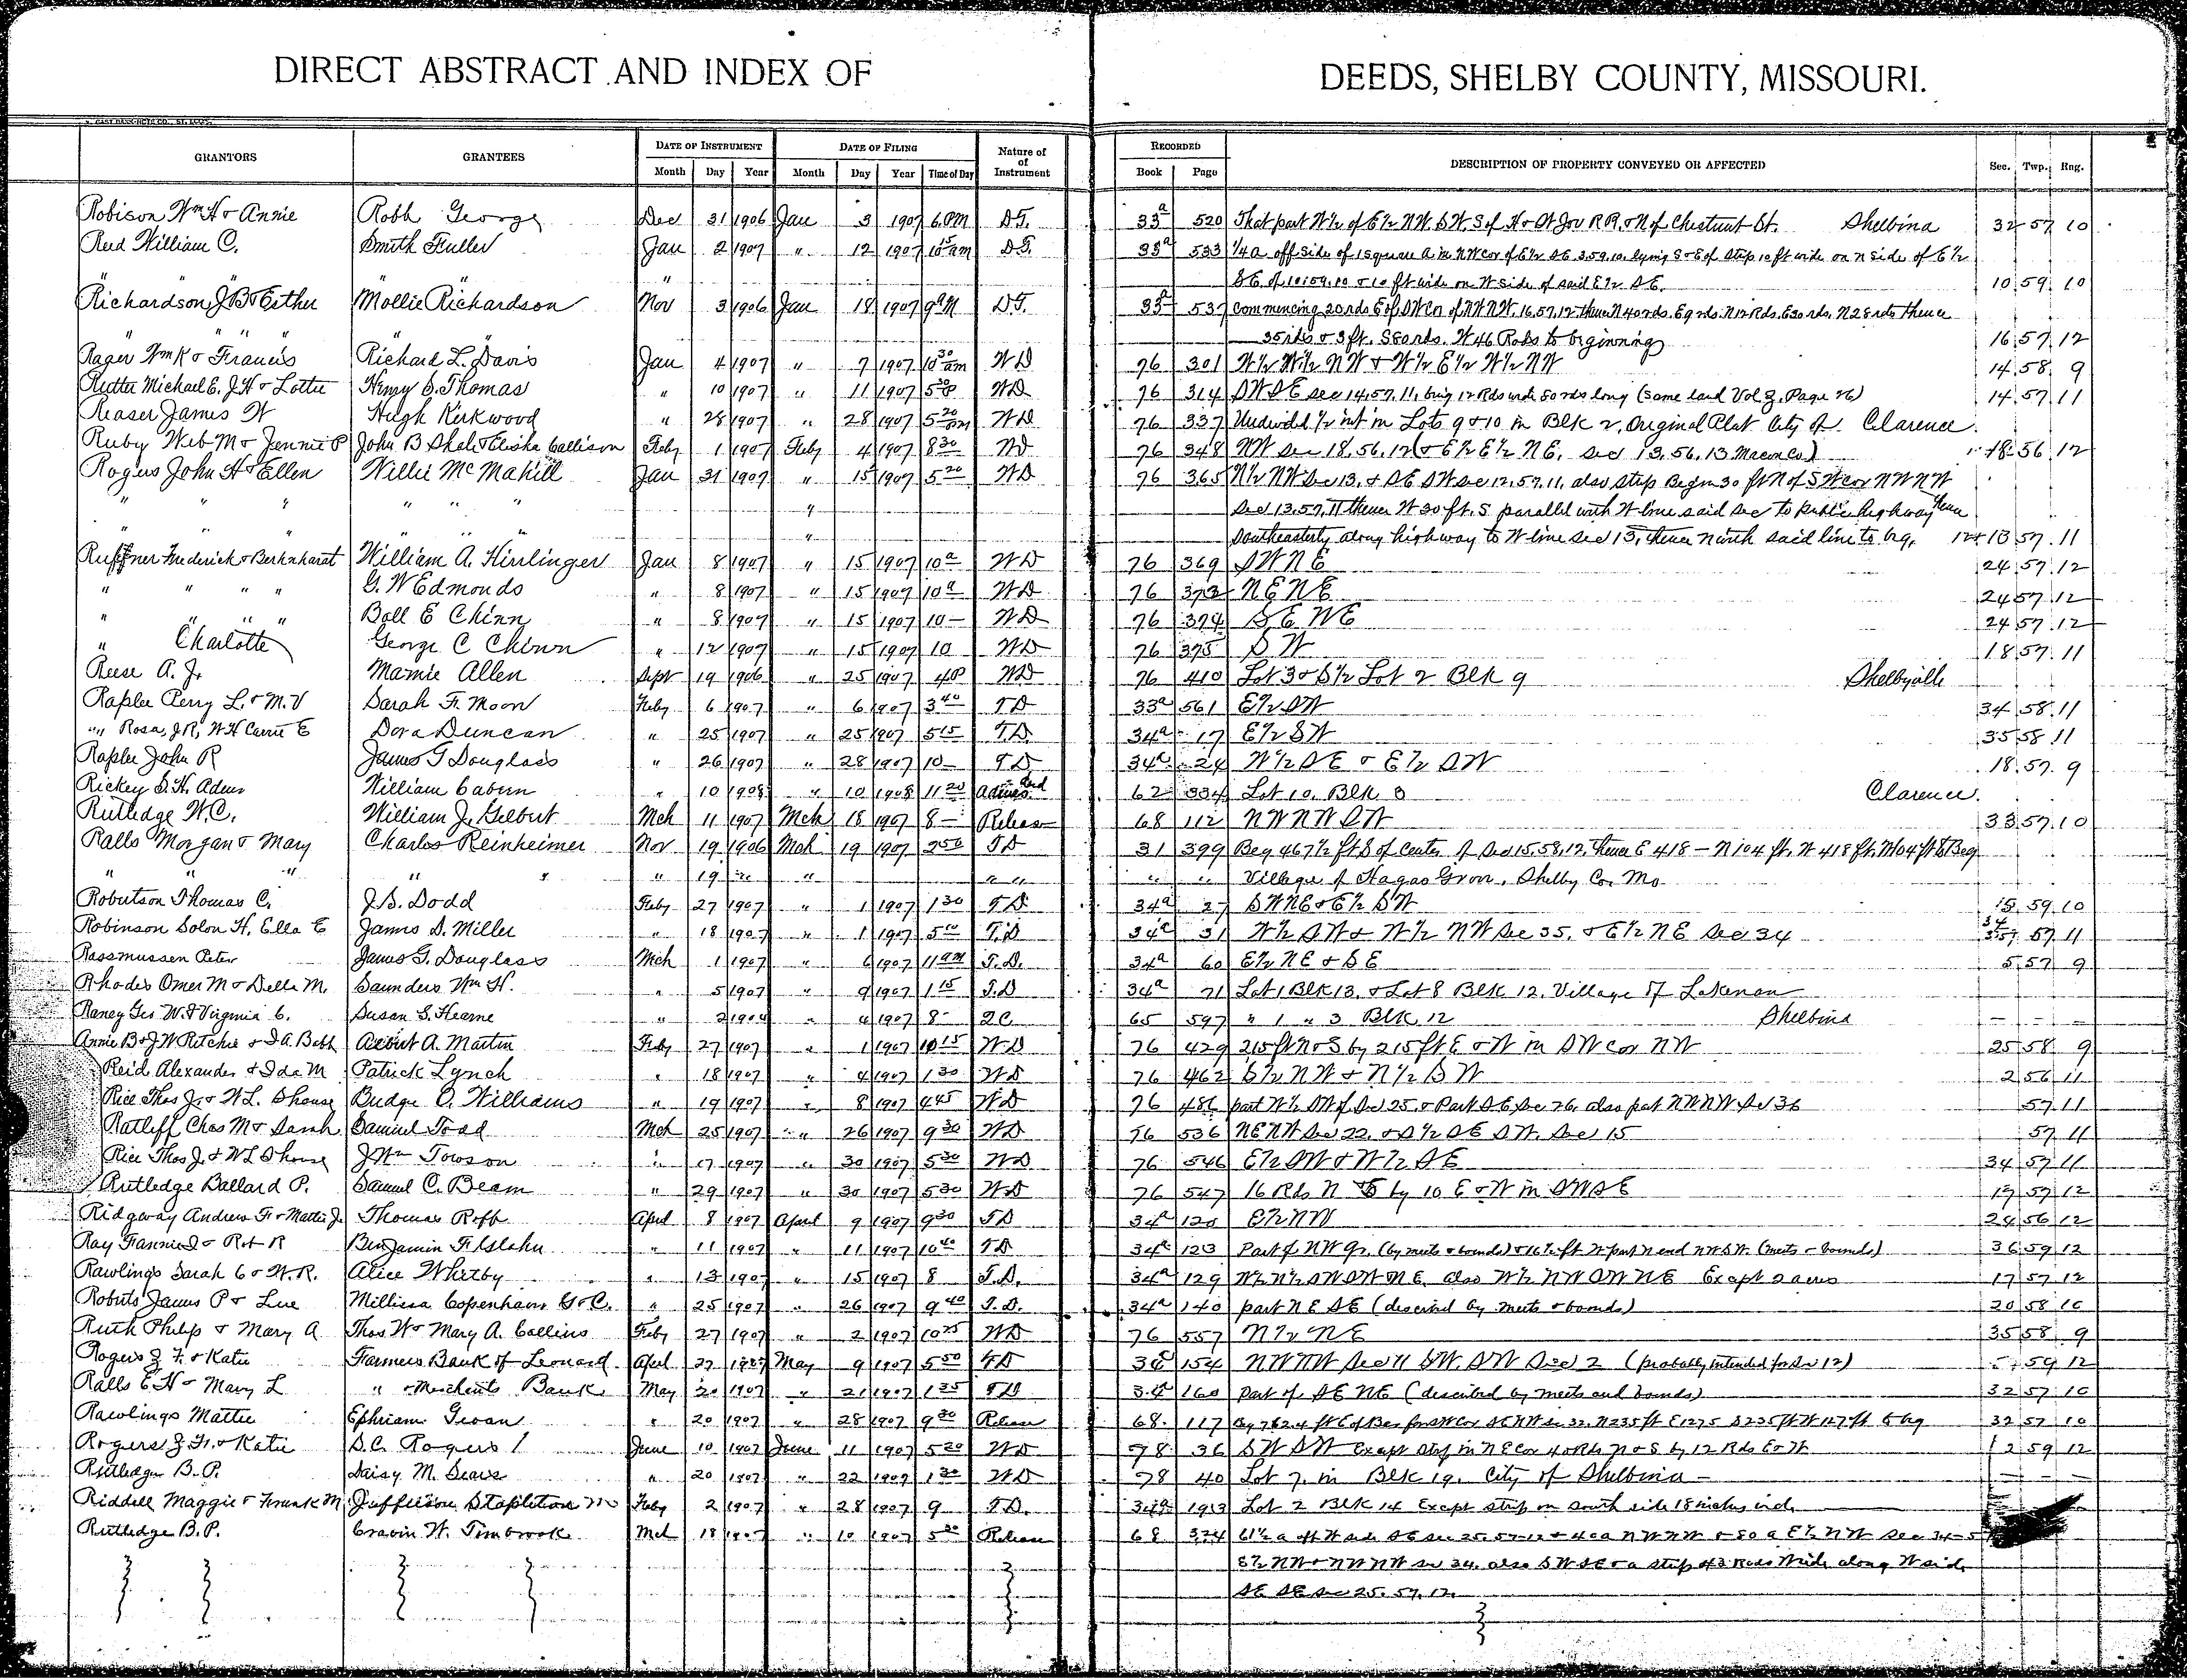 DIRECT ABSTRACT AND INDEX OF DEEDS, SHELBY COUNTY, MISSOURI.
GRANTORS GRANTEES DATE OF INSTRUMENT DATE OF FILING Nature of of Instrument RECORDED DESCRIPTION OF PROPERTY CONVEYED OR AFFECTED Sec. Twp. Rng.
Month Day Year Month Day Year Time of Day Book Page
Robison Wm H & Annie Robb George Dec 31 1906 Jan 3 1907 6 PM D.T. 33a 520 That part W½ of E½ NW SW S of H & St Jos RR. & N of Chestnut St. Shelbina 32 57 10
Reed William C. Smith Fuller Jan 2 1907 " 12 1907 D.T. 33a 533 ¼ a off side of 1 square a in NW cor of E½ SE 3.59.10. lying S & E of strip 10 ft wide on N side of E½
" " SE of 10.59.10 & 10 ft wide on W side of said E½ SE. 10 59 10
Richardson J B & Esther Mollie Richardson Nov 3 1906 Jan 18 1907 9 AM D.T. 33a 537 Commencing 20 rds E of SW Cr of NW NW. 16.57.12 thence N 40 rds. E 9 rds. N 12 Rds. E 30 rds. N 28 rds thence
" " " " " 35 rds & 3 ft. S 80 rds. W 46 Rods to beginning 16 57 12
Rager Wm K & Francis Richard L. Davis Jan 4 1907 " 7 1907 10 30 am WD 76 301 W½ W½ NW & W½ E½ W½ NW 14 58 9
Rutter Michael E. J H & Lottie Henry S. Thomas " 10 1907 " 11 1907 5 30 P WD 76 314 SW SE Sec 14.57.11, being 12 Rds wide 50 rds long (same land Vol 3, Page 76) 14 57 11
Reaser James W Hugh Kirkwood " 28 1907 " 28 1907 5 20 pm WD 76 337 Undivided ½ int in Lots 9 & 10 in Blk 2, Original Plat City of Clarence.
Ruby Web M & Jennie P John B Shale & Elisha Callison Feby 1 1907 Feby 4 1907 8 30 WD 76 348 NW Sec 18.56.12 (& E½ E½ NE. Sec 13.56.13 Macon Co) 18 56 12
Rogers John H & Ellen Willie McMahill Jan 31 1907 " 15 1907 5 20 WD 76 365 N½ NW Sec 13. & SE SW Sec 12.57.11, also strip Begin 30 ft N of SW cor NW NW
" " " " " " " Sec 13.57.11 thence W 30 ft. S parallel with W line said Sec to public highway thence
" " " " " " " Southeasterly along highway to W line Sec 13, thence north said line to beg. 12 & 13 57 11
Ruffner Frederick & Berhnharst William A. Hirrlinger Jan 8 1907 " 15 1907 10 a WD 76 369 SW NE 24 57 12
" " " " G. W Edmonds " 8 1907 " 15 1907 10 a WD 76 373 NE NE 24 57 12
" " " " Boll E Chinn " 8 1907 " 15 1907 10 — WD 76 374 SE NE 24 57 12
" Charlotte George C Chinn " 12 1907 " 15 1907 10 WD 76 375 SW 18 57 11
Reese A. J. Mamie Allen Sept 19 1906 " 25 1907 4 P WD 76 410 Lot 3 & S½ Lot 2 Blk 9 Shelbyville
Raplee Perry L. & M.V Sarah F. Moon Feby 6 1907 " 6 1907 3 40 TD 33a 561 E½ SW 34 58 11
" " Rosa, J R, W H Carrie E Dora Duncan " 25 1907 " 25 1907 5 15 T.D. 34a 17 E½ SW 35 58 11
Raplee John R James G Douglass " 26 1907 " 28 1907 10 — TD 34a 24 W½ SE & E½ SW 18 57 9
Rickey S. H. Admr William Caburn " 10 1908 " 10 1908 11 20 Admrs Deed 62 334 Lot 10. Blk 8 Clarence.
Rutledge W. C. William J. Gilbert Mch 11 1907 Mch 18 1907 8 — Release 68 112 NW NW SW 33 57 10
Ralls Morgan & Mary Charles Reinheimer Nov 19 1906 Mch 19 1907 2 50 TD 31 399 Beg 467½ ft S of Center of Sec 15.58.12. Thence E 418 — N 104 ft. W 418 ft. N 104 ft to Beg
" " " " " " 19 " " " " " " Village of Hagas Grove. Shelby Co. Mo
Robertson Thomas C. J. S. Dodd Feby 27 1907 " 1 1907 1 30 T.D. 34a 27 SW NE & E½ SW 15 59 10
Robinson Solon H. Ella E James S. Miller " 18 1907 " 1 1907 5 00 T.D 34a 31 W½ SW & W½ NW Sec 35. & E½ NE Sec 34 57 11
Rassmussen Peter James G. Douglass Mch 1 1907 " 6 1907 11 am T.D. 34a 60 E½ NE & SE 5 57 9
Rhodes Omer M & Della M. Saunders Wm H. " 5 1907 " 9 1907 1 15 T.D 34a 71 Lot 1 Blk 13. & Lot 8 Blk 12. Village of Lakenan
Raney Geo W. & Virginia C. Susan S. Hearne " 2 1904 " 4 1907 8 — QC. 65 597 " 1 " 3 Blk. 12 Shelbina
Annie B & J W Ritchie & I A. Bobb Albert A. Martin Feby 27 1907 " 1 1907 10 15 WD 76 429 215 ft N & S by 215 ft E & W in SW cor NW 25 58 9
Reid Alexander & Ida M Patrick Lynch " 18 1907 " 4 1907 1 30 WD 76 462 S½ NW & N½ SW 2 56 11
Rice Thos J. & W L. Shouse Budge O. Williams " 19 1907 " 8 1907 4 45 WD 76 486 part W½ SW of Sec 25. & Part SE Sec 26, also part NW NW Sec 36 57 11
Ratliff Chas M & Sarah Samuel Todd Mch 25 1907 " 26 1907 9 30 WD 76 536 NE NW Sec 22. & S½ SE SW. Sec 15 57 11
Rice Thos J. & W L Shouse J. Wm Towson " 17 1907 " 30 1907 5 30 WD 76 546 E½ SW & W½ SE 34 57 11
Rutledge Ballard P. Samuel C. Beam " 29 1907 " 30 1907 5 30 WD 76 547 16 Rds N & S by 10 E & W in SW SE 17 57 12
Ridgway Andrew F. & Mattie J. Thomas Robb April 8 1907 April 9 1907 9 30 TD 34a 120 E½ NW 24 56 12
Ray Fannie I & Robt R Benjamin F. " 11 1907 " 11 1907 10 40 TD 34a 123 Part of NW qr. (by meets & bounds) & 16½ ft W part N end NW SW. (meets & bounds) 36 59 12
Rawlings Sarah C & W. R. Alice Whitby " 13 1907 " 15 1907 8 T.D. 34a 129 W½ N½ SW SW NE, also W½ NW SW NE Except 2 acres 17 57 12
Roberts James P & Lue Millissa Copenhaver G & C. " 25 1907 " 26 1907 9 40 T.D. 34a 140 part NE SE (described by meets & bounds) 20 58 10
Ruth Philip & Mary A Thos W & Mary A. Collins Feby 27 1907 " 2 1907 10 25 WD 76 557 N½ NE 35 58 9
Rogers J. F. & Katie Farmers Bank of Leonard April 27 1907 May 9 1907 5 50 TD 34a 154 NW NW Sec 11 SW. SW Sec 2 (probably intended for Sec 12) 59 12
Ralls E. H & Mary L " & Merchants Bank May 20 1907 " 21 1907 1 35 TD 34a 160 part of SE NE (described by meets and bounds) 32 57 10
Rawlings Mattie Ephriam Gwan " 20 1907 " 28 1907 9 30 Release 68 117 Beg 762.4 ft E of SW Cor SE NW Sec 32. N 235 ft E 127.5 S 235 ft W 127 ft to beg 32 57 10
Rogers J. F. & Katie S. C. Rogers June 10 1907 June 11 1907 5 20 WD 78 36 SW SW Except strip in NE Cor 40 Rds N & S by 12 Rds E & W 12 59 12
Rutledge B. P. Daisy M. Sears " 20 1907 " 22 1907 1 30 WD 78 40 Lot 7. in Blk 19. City of Shelbina —
Riddell Maggie & Frank M. Jefferson Stapleton Feby 2 1907 " 28 1907 9 T.D. 34a 193 Lot 2 Blk 14 Except strip on south side 18 inches wide
Rutledge B. P. Cravin W. Timbrook Mch 18 1907 " 10 1907 5 30 Release 68 324 61½ a off W side SE Sec 25.57.12 & 40 a NW NW & 80 a E½ NW Sec 34-5
E½ NW & NW NW Sec 34. also SW SE & a strip 43 Rods Wide along W side
SE SE Sec 25. 57. 12.